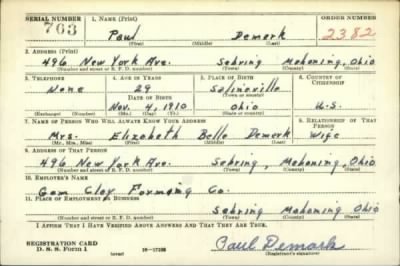 SERIAL NUMBER 1. NAME (Print) ORDER NUMBER
763 Paul Demerk 2382
(First) (Middle) (Last)
2. ADDRESS (Print)
496 New York Ave. Sebring Mahoning, Ohio
(Number and street or R. F. D. number) (Town) (County) (State)
3. TELEPHONE 4. AGE IN YEARS 5. PLACE OF BIRTH 6. COUNTRY OF CITIZENSHIP
None 29 Salineville
DATE OF BIRTH (Town or county)
Nov. 4, 1910 Ohio U.S.
(Exchange) (Number) (Mo.) (Day) (Yr.) (State or country)
7. NAME OF PERSON WHO WILL ALWAYS KNOW YOUR ADDRESS 8. RELATIONSHIP OF THAT PERSON
Mrs. Elizabeth Belle Demerk Wife
(Mr., Mrs., Miss) (First) (Middle) (Last)
9. ADDRESS OF THAT PERSON
496 New York Ave. Sebring, Mahoning, Ohio
(Number and street or R. F. D. number) (Town) (County) (State)
10. EMPLOYER'S NAME
Gem Clay Forming Co.
11. PLACE OF EMPLOYMENT OR BUSINESS
Sebring Mahoning Ohio
(Number and street or R. F. D. number) (Town) (County) (State)
I AFFIRM THAT I HAVE VERIFIED ABOVE ANSWERS AND THAT THEY ARE TRUE.
REGISTRATION CARD
D. S. S. Form 1 Paul Demark
(over) (Registrant's signature)